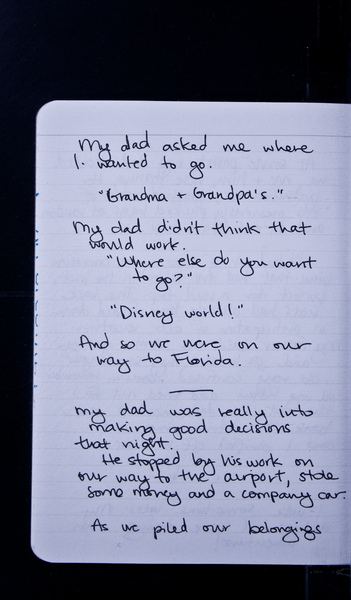 My dad asked me where
I wanted to go.
"Grandma + Grandpa's."
My dad didn't think that
would work.
"Where else do you want
to go?"
"Disney world!"
And so we were on our
way to Florida.
my dad was really into
making good decisions
that night.
He stopped by his work on
our way to the airport, stole
some money and a company car.
As we piled our belongings